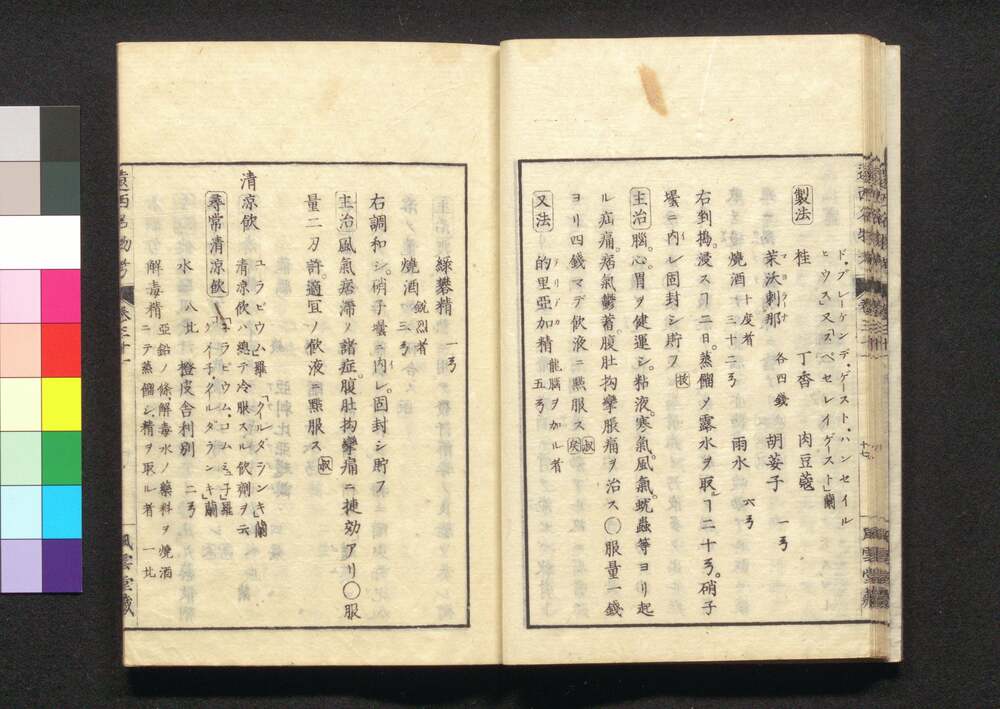 ド・ブレーケンデ・ゲースト・ハン・セイル
ヒウス又「スペセレイゲースト」蘭
製法
桂 丁香 肉豆蔲 一ゟ
茉沃剌那 マヨラナ 各四錢 胡荽子
燒酒 十度者 三十二ゟ 雨水 六ゟ
右剉搗。浸スヿ二日。蒸餾ノ露水ヲ取ヿ二十ゟ。硝子
壜ニ内レ固封シ貯フ 扶
主治 腦。心胃ヲ健運シ。粘液。寒氣。風氣。蚘蟲等ヨリ起
ル疝痛。痞氣鬱蓄。腹肚拘攣腹痛ヲ治ス〇服量一錢
ヨリ四錢マデ飲液ニ㸃服ス 叔 矦
又法 的里亜加精 テリアカ 龍腦ヲ加ル者 五ゟ
綠礬精 一ゟ
燒酒 銳烈者 三ゟ
右調和シ。硝子壜ニ内レ。固封シ貯フ
主治 風氣痞滯ノ諸症腹肚拘攣痛ニ捷効アリ〇服
量二刀許。適宜ノ飲液ニ㸃服ス 叔
清凉飲 ユラピウム羅「イルダランキ」蘭
清凉飲ハ總テ冷服スル飲劑ヲ云
尋常清凉飲 「ユラピウム・コムミュ子」羅
「ゲメイ子・イルダランキ」蘭
水 八比 橙皮舎利別 二ゟ
解毒精 亞鉛ノ條。解毒水ノ藥料ヲ燒酒
ニテ蒸餾シ。精ヲ取ル者 一比
遠西名物考
卷三十一
風雲堂藏